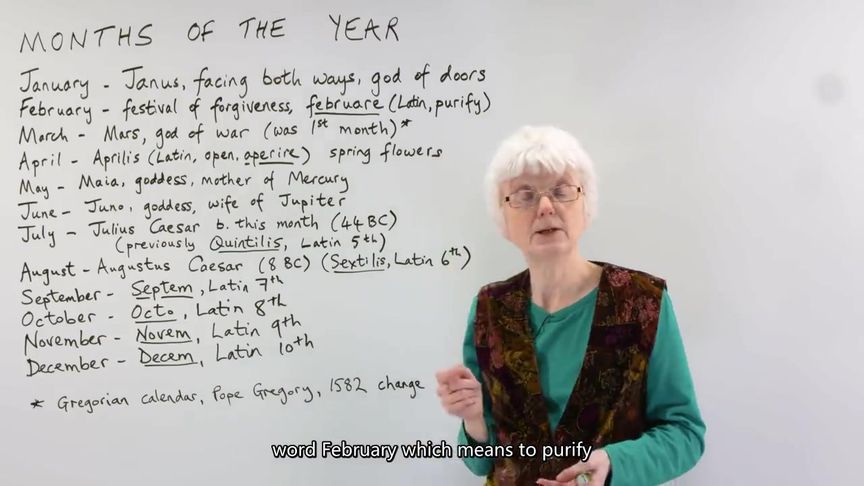 MONTHS OF THE YEAR
January - Janus, facing both ways, god of doors
February - festival of forgiveness, februare (Latin, purify)
March - Mars, god of war (was 1st month)*
April - Aprilis (Latin, open, aperire) spring flowers
May - Maia, goddess, mother of Mercury
June - Juno, goddess, wife of Jupiter
July - Julius Caesar b. this month (44 BC)
(previously Quintilis, Latin 5th)
August - Augustus Caesar (8 BC) (Sextilis, Latin 6th)
September - Septem, Latin 7th
October - Octo, Latin 8th
November - Novem, Latin 9th
December - Decem, Latin 10th
* Gregorian calendar, Pope Gregory, 1582 change
word February which means to purify